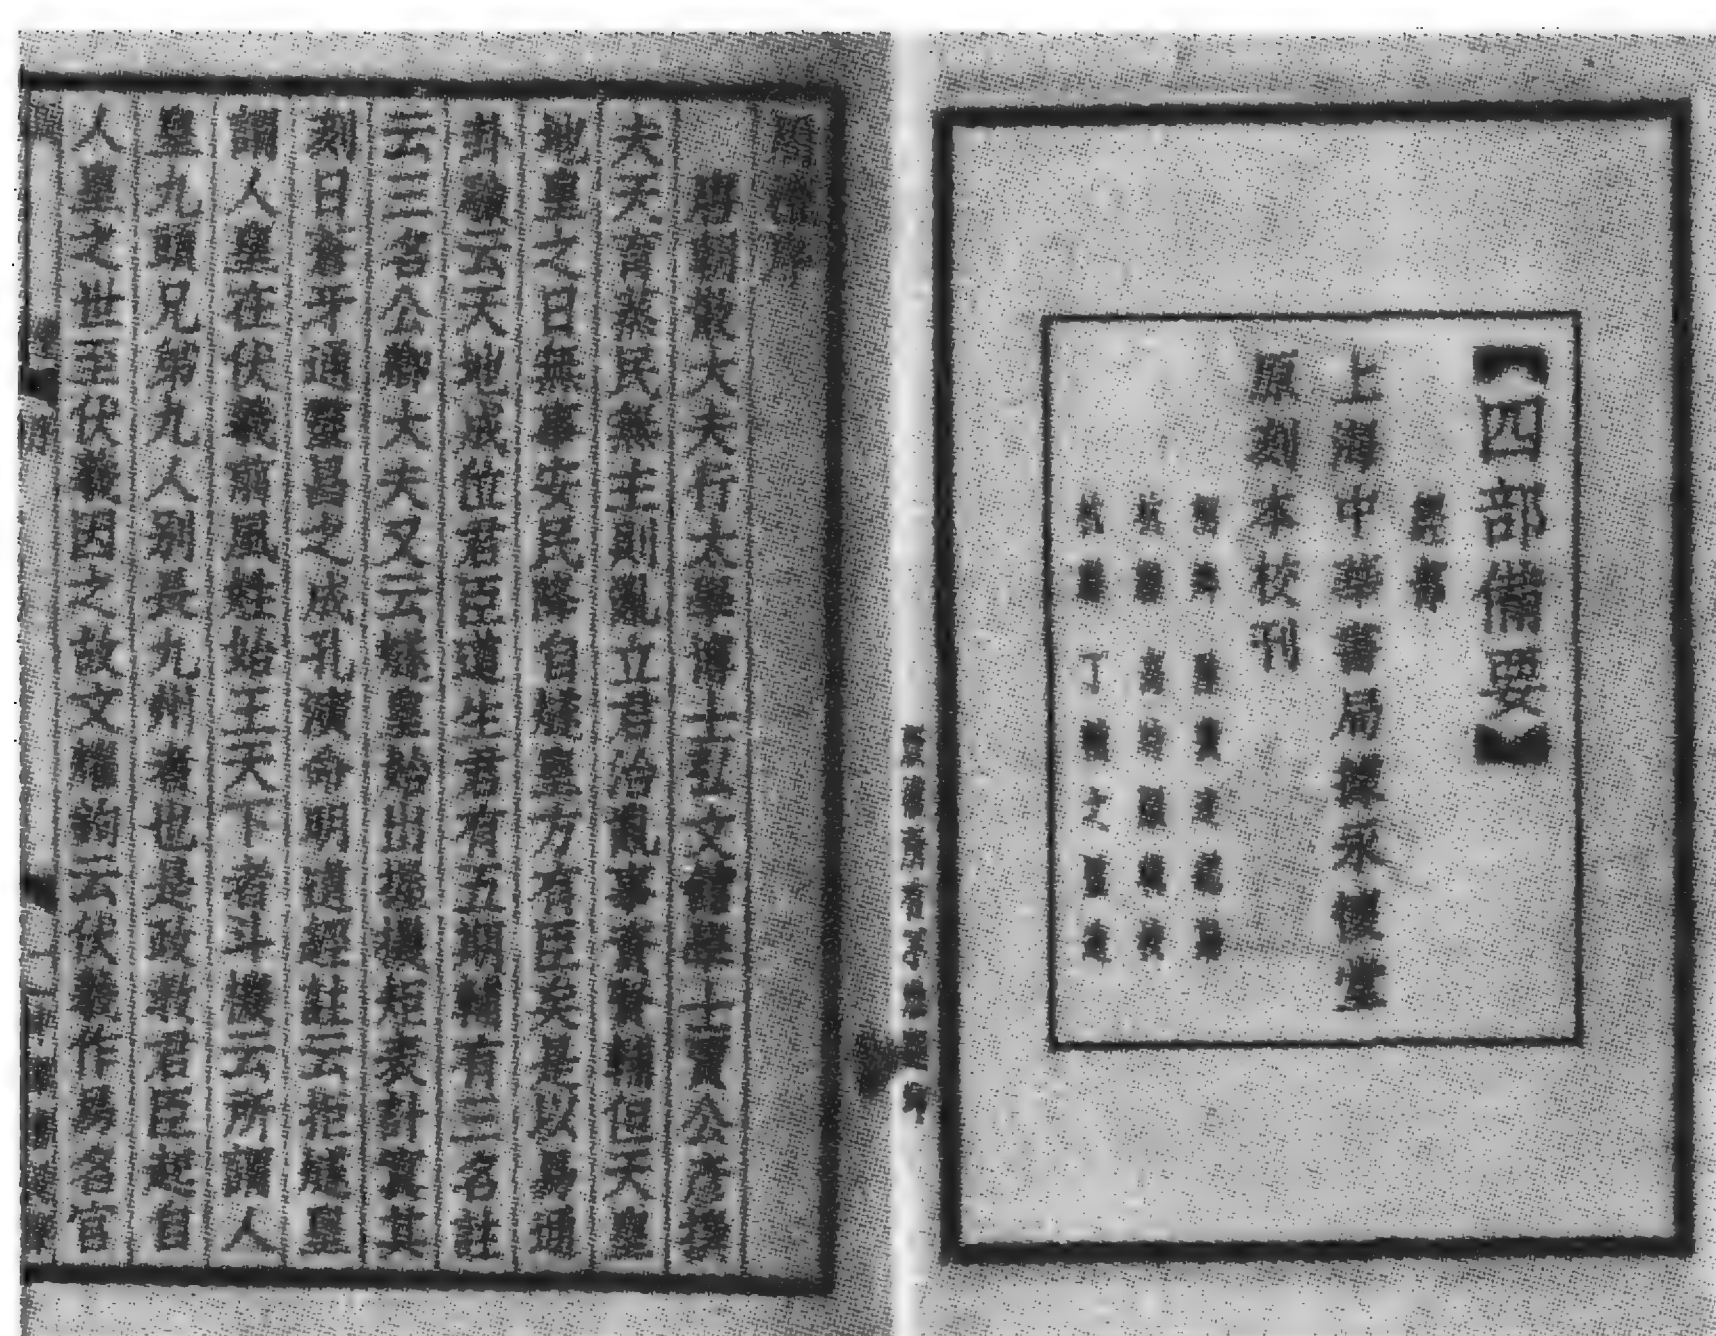 【四部備要】
經部
上海中華書局據永懷堂
原刻本校刊
桐鄉 陸費逵總勘
杭縣 高時顯輯校
杭縣 丁輔之監造
唐朝散大夫行太學博士弘文館學士賈公彥撰
夫天育蒸民無主則亂立君治亂事資賢輔但天皇
地皇之日無事安民降自燧皇方有臣矣是以易通
卦驗云天地成位君臣道生君有五期輔有三名註
云三名公卿大夫又云燧皇始出握機矩表計寘其
刻曰蒼牙通靈昌之成孔演命明道經註云燧皇
謂人皇在伏羲前風姓始王天下者斗機云所謂人
皇九頭兄弟九人別長九州者也是政教君臣起自
人皇之世至伏羲因之故文耀鉤云伏羲作易名官